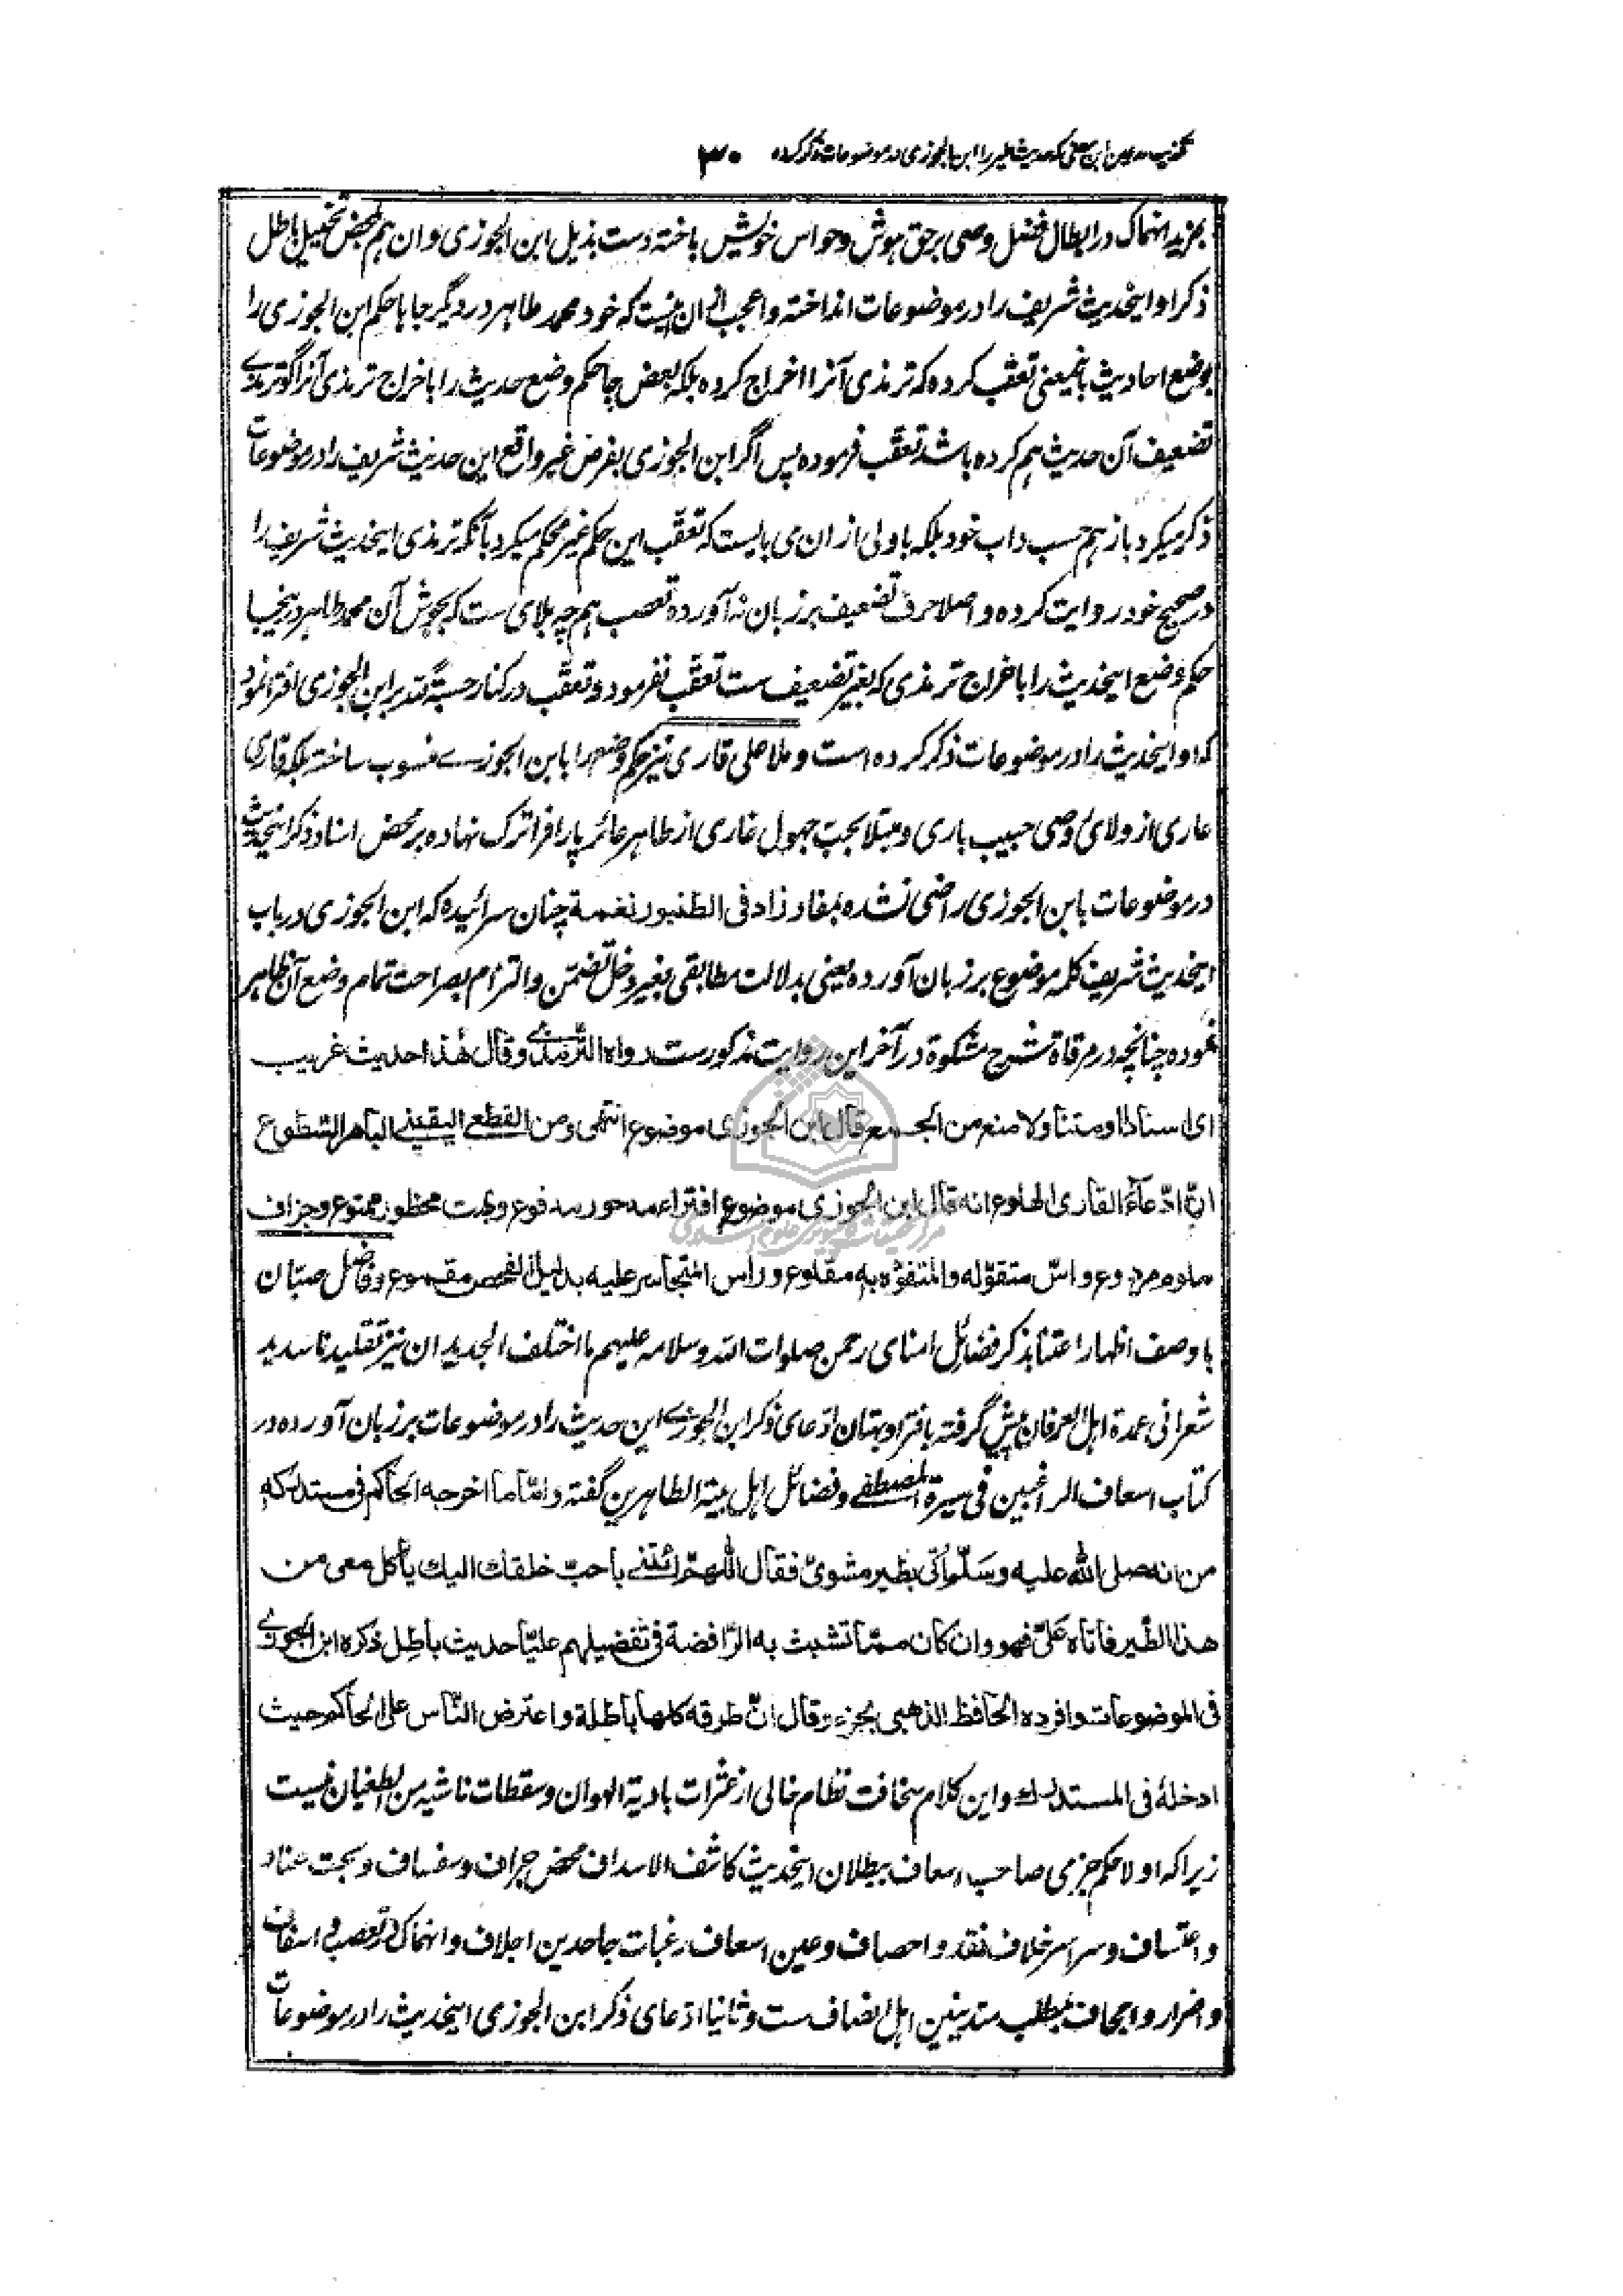 تکذیب مدعین این معنی که حدیث طیر را ابن الجوزی در موضوعات ذکر کرده ۳۰
بمزید انهماک در ابطال فضل وصی برحق هوش و حواس خویش باخته دست بذیل ابن الجوزی و ان هم بمحض تخییل باطل
ذکر او اینحدیث شریف را در موضوعات انداخته و اعجب ازان اینست که خود محمد طاهر در دیگر جاها حکم ابن الجوزی را
بوضع احادیث باینمعنی تعقب کرده که ترمذی آنرا اخراج کرده بلکه بعض جا حکم وضع حدیث را باخراج ترمذی آنرا گو ترمذے
تضعیف آن حدیث هم کرده باشد تعقب فرموده پس اگر ابن الجوزی بفرض غیر واقع این حدیث شریف را در موضوعات
ذکر میکرد باز هم حسب داب خود بلکه باولی ازان می بایست که تعقب این حکم غیر محکم میکرد بآنکه ترمذی اینحدیث شریف را
در صحیح خود روایت کرده و اصلا حرف تضعیف بر زبان نه آورده تعصب هم چه بلای ست که بجوش آن محمد طاهر در ینجا
حکم وضع اینحدیث را باخراج ترمذی که بغیر تضعیف ست تعقب نفرمود و تعقب در کنار حسبة لله بر ابن الجوزی افترا نمود
که او اینحدیث را در موضوعات ذکر کرده است و ملا علی قاری نیز حکم وضع را بابن الجوزے منسوب ساخته بلکه قاری
عاری از ولای وصی حبیب باری و مبتلا بجب جهول غاری از طاهر عائر پا را فراترک نهاده بر محض اسناد ذکر اینحدیث
در موضوعات بابن الجوزی راضی نشده بمفاد زاد فی الطنبور نغمة چنان سرائیده که ابن الجوزی در باب
اینحدیث شریف کلمه موضوع بر زبان آورده یعنی بدلالت مطابقی بغیر دخل تضمن و التزام بصراحت تمام وضع آن ظاهر
نموده چنانچه در مرقاة شرح مشکوة در آخر این روایت مذکورست رواه الترمذے وقال هذا حدیث غریب
ای اسنادا ومتنا ولا منع من الجمع قال ابن الجوزی موضوع انتهی ومن القطعی الیقینی الباهر السطوع
ان ادعاء القاری الهلوع انه قال ابن الجوزی موضوع افتراء مدحور مدفوع وبهت محظور ممنوع وجزاف
ملوم مردوع واس متقوله والمتفوه به مقلوع وراس المتجاسر علیه بدلیل الفحص مقموع و فاضل صبان
با وصف اظهار اعتنا بذکر فضائل امنای رحمن صلوات الله و سلامه علیهم ما اختلف الجدیدان نیز تقلید ناسدید
شعرانی عمدة اهل العرفان پیش گرفته بافترا و بهتان ادعای ذکر ابن الجوزے این حدیث را در موضوعات بر زبان آورده در
کتاب اسعاف الراغبین فی سیرة المصطفی و فضائل اهل بیته الطاهرین گفته واما ما اخرجه الحاکم فی مستدرکه
من انه صلی الله علیه وسلم اتی بطیر مشوی فقال اللهم ائتنی باحب خلقک الیک یأکل معی من
هذا الطیر فاتاه علی فهو وان کان مما تشبث به الرافضة فی تفضیلهم علیا حدیث باطل ذکره ابن الجوزے
فی الموضوعات وافرده الحافظ الذهبی بجزء وقال ان طرقه کلها باطلة واعترض الناس علی الحاکم حیث
ادخله فی المستدرک و این کلام سخافت نظام خالی از عثرات بادیة الهوان و سقطات ناشیه من الطغیان نیست
زیرا که اولا حکم جزمی صاحب اسعاف ببطلان اینحدیث کاشف الاسداف محض جزاف و سفساف و بحت عناد
و اعتساف و سراسر خلاف نقد و احصاف و عین اسعاف رغبات جاحدین اجلاف و انهماک در تعصب و اسفاف
و اضرار و اجحاف بمطلب متدینین اهل انصاف ست و ثانیا ادعای ذکر ابن الجوزی اینحدیث را در موضوعات
مرکز تحقیقات کامپیوتری علوم اسلامی